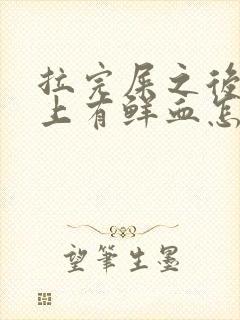 拉完屎之後
上有鲜血怎
望筆生墨